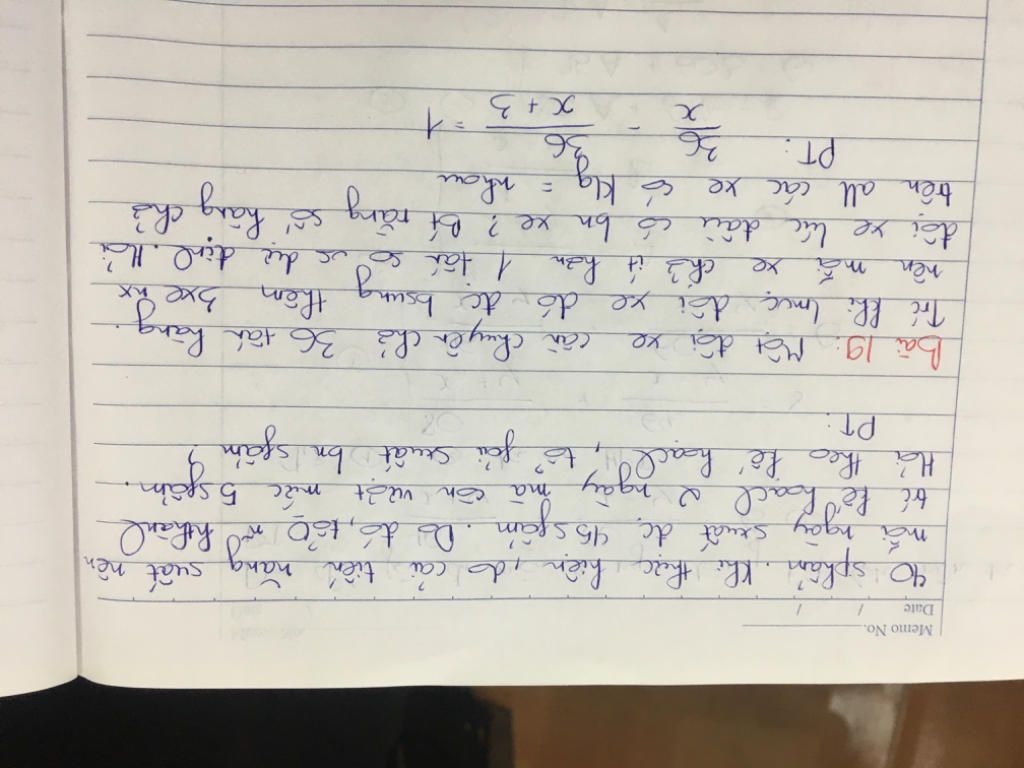 Memo No.
Date / /
40 sphẩm. Khi thực hiện, do cải tiến năng suất nên
mỗi ngày sxuất đc 45 sphẩm. Do đó, tổ hthành
trc kế hoạch 2 ngày mà còn vượt mức 5 sphẩm.
Hỏi theo kế hoạch, tổ phải sxuất bn sphẩm?
PT:
Bài 19: Một đội xe cần chuyên chở 36 tấn hàng.
Trc khi lmviệc, đội xe đó đc bsung thêm 3 xe nx
nên mỗi xe chở ít hơn 1 tấn so vs dự định. Hỏi
đội xe lúc đầu có bn xe? Bt rằng số hàng chở
trên all các xe có klg = nhau
PT: 36/x - 36/(x + 3) = 1